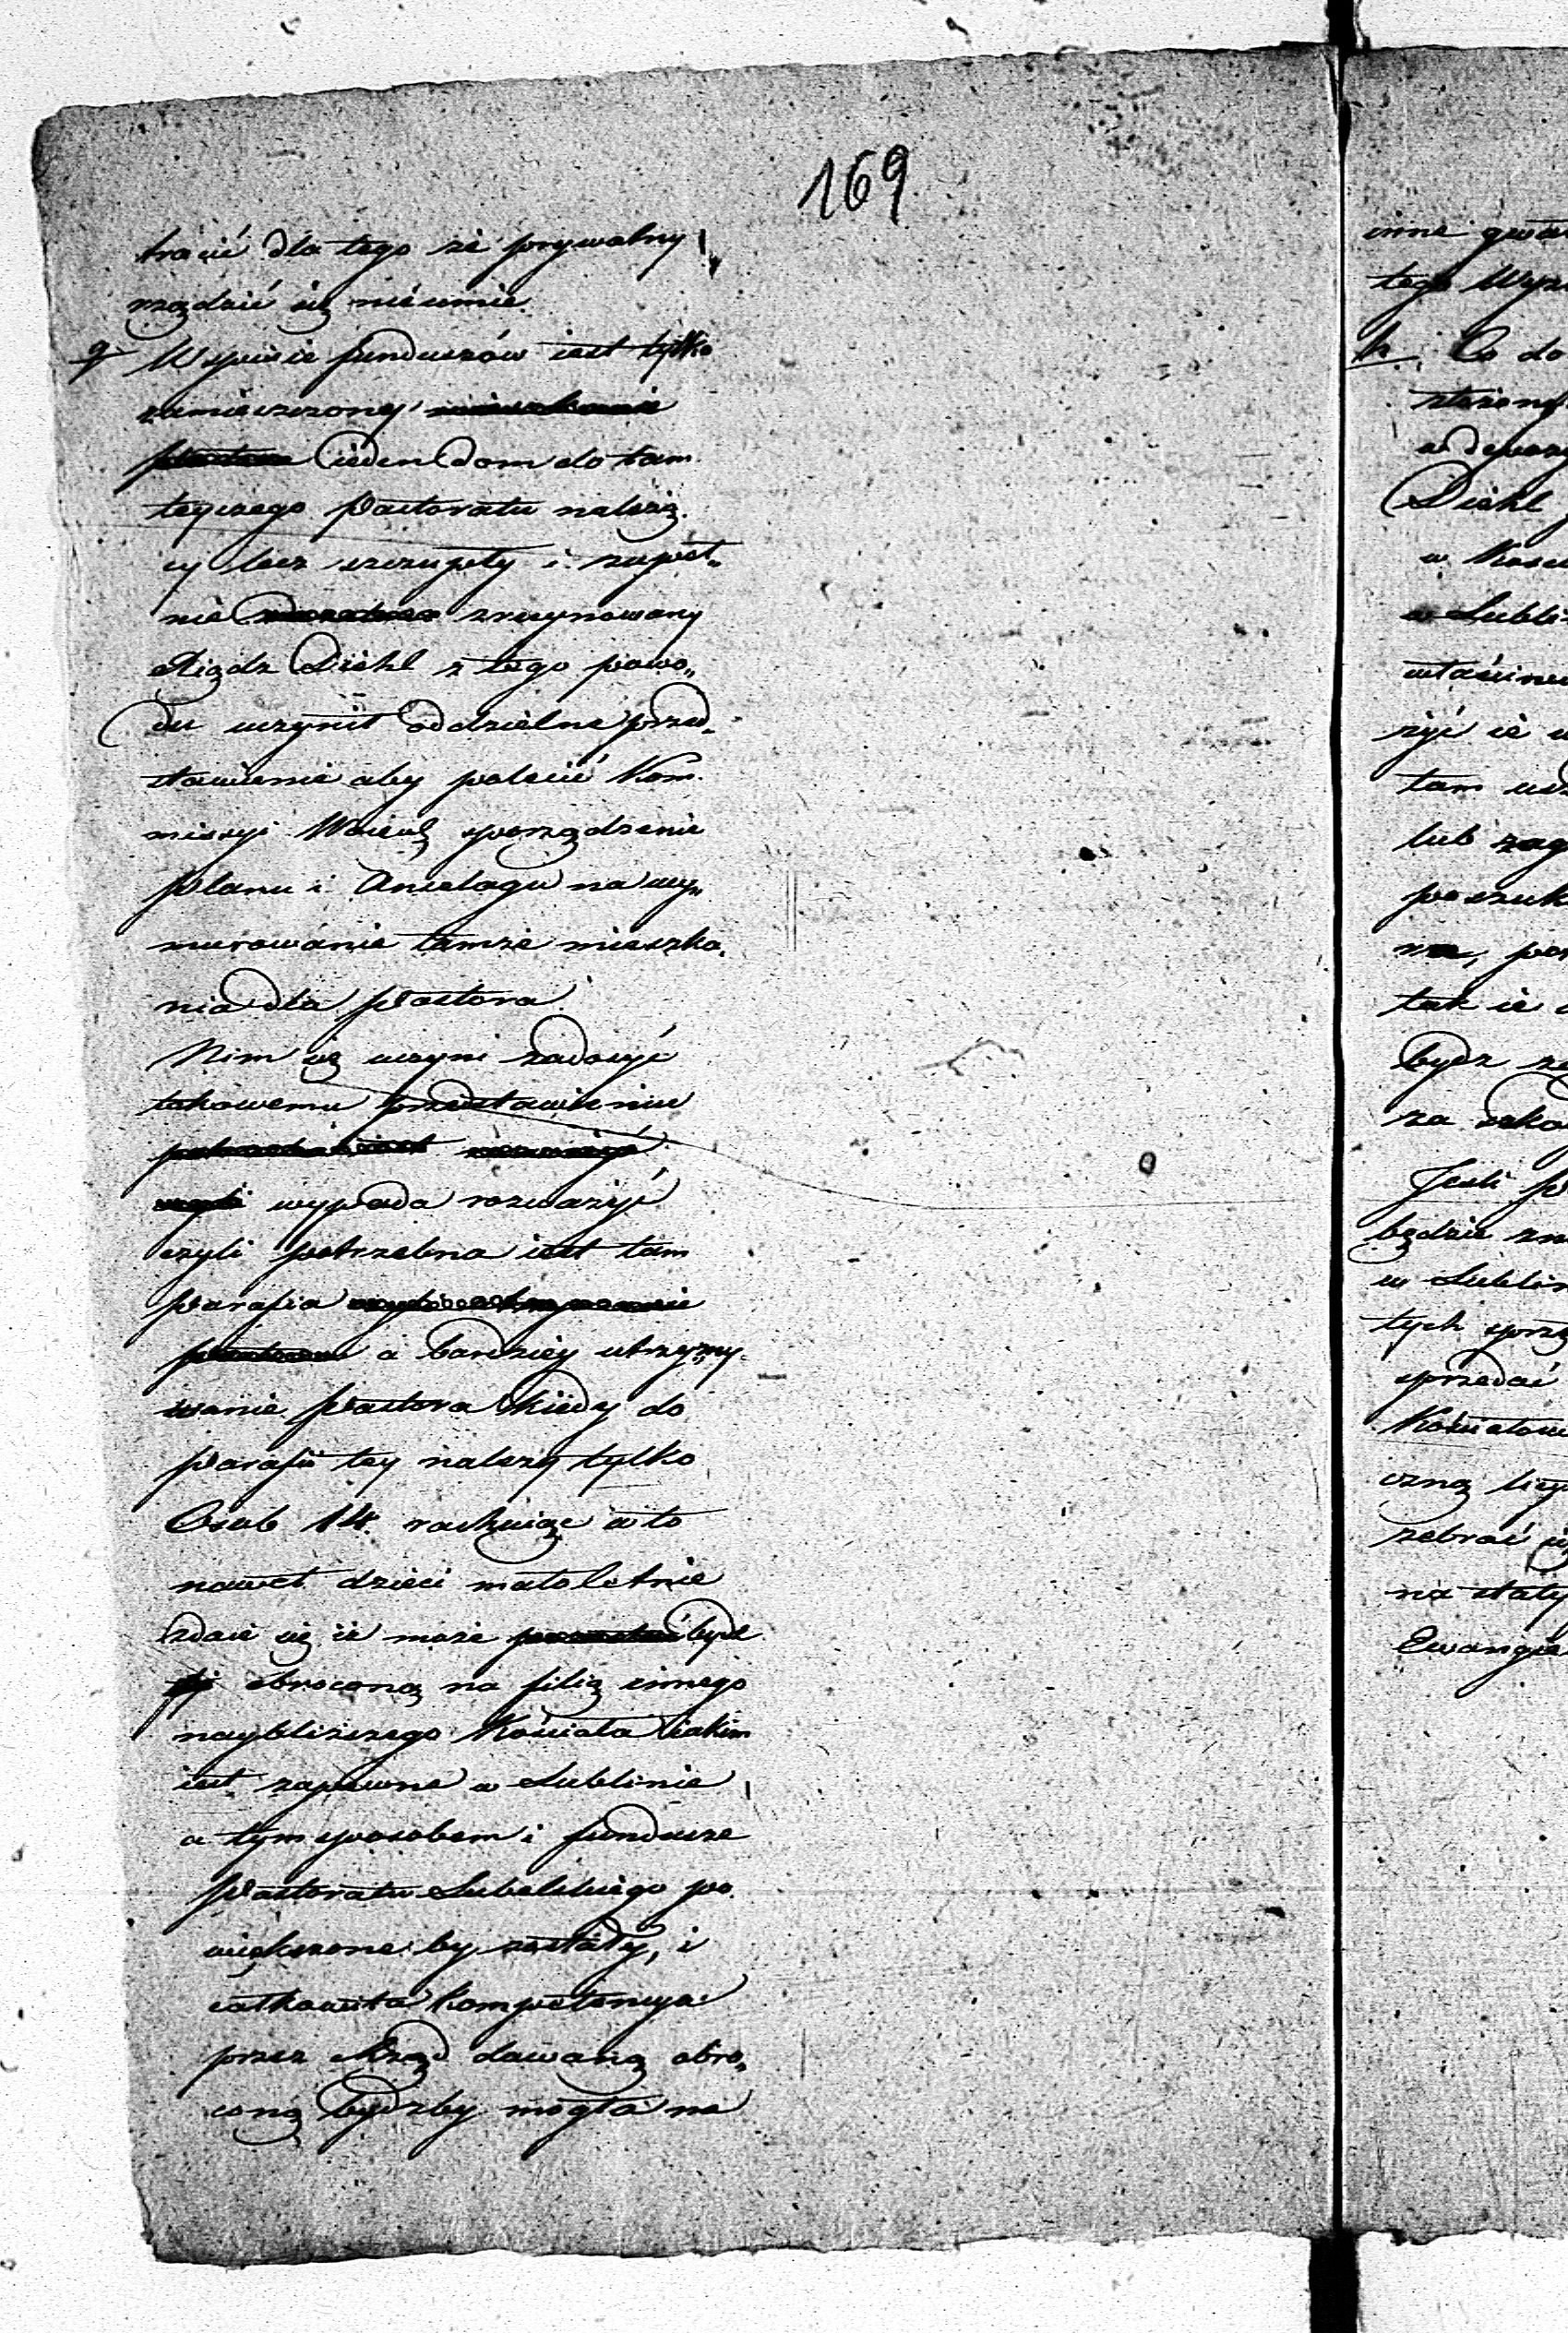 169
tracić dla tego że prywatny
rządzić się nieumie.
g W spisie funduszów iest tylko
zamieszczony
ieden Dom do tam
teyszego Pastoratu należą.
cy lecz szczupły i zupeł„
nie zruynowany
Xiądz Diehl z tego powo„
du uczynił oddzielne przed„
stawienie aby polecić Kom.
missyi Woiewz sporządzenie
Planu i Anszlagu na wy„
murowanie tamże mieszka„
nia dla Pastora
Nim się uczyni zadosyć
takowemu przedstawieniu
wypada rozważyć
czyli potrzebna iest tam
Parafia
a bardziey utrzymy„
wanie Pastora kiedy do
Parafii tey należy tylko
Osub 14. rachuiąc w to
nawet dzieci małoletnie
zdaie się że może bydz
obroconą na filią innego
naybliższego Kościoła iakim
iest zapewne w Lublinie
a tym sposobem i fundusze
Pastoratu Lubelskiego po„
większone by zostały, i
całkowita kompetencya
przez Rząd dawana obro„
coną bydźby mogła na
inne
tego
h. Co do
Diehl
w
w Lubli
tam
lub
tak ie
bydz
za
Jeśli
będzie
w Lublin
tych
sprzedać
zebrać
na stały
Ewangie